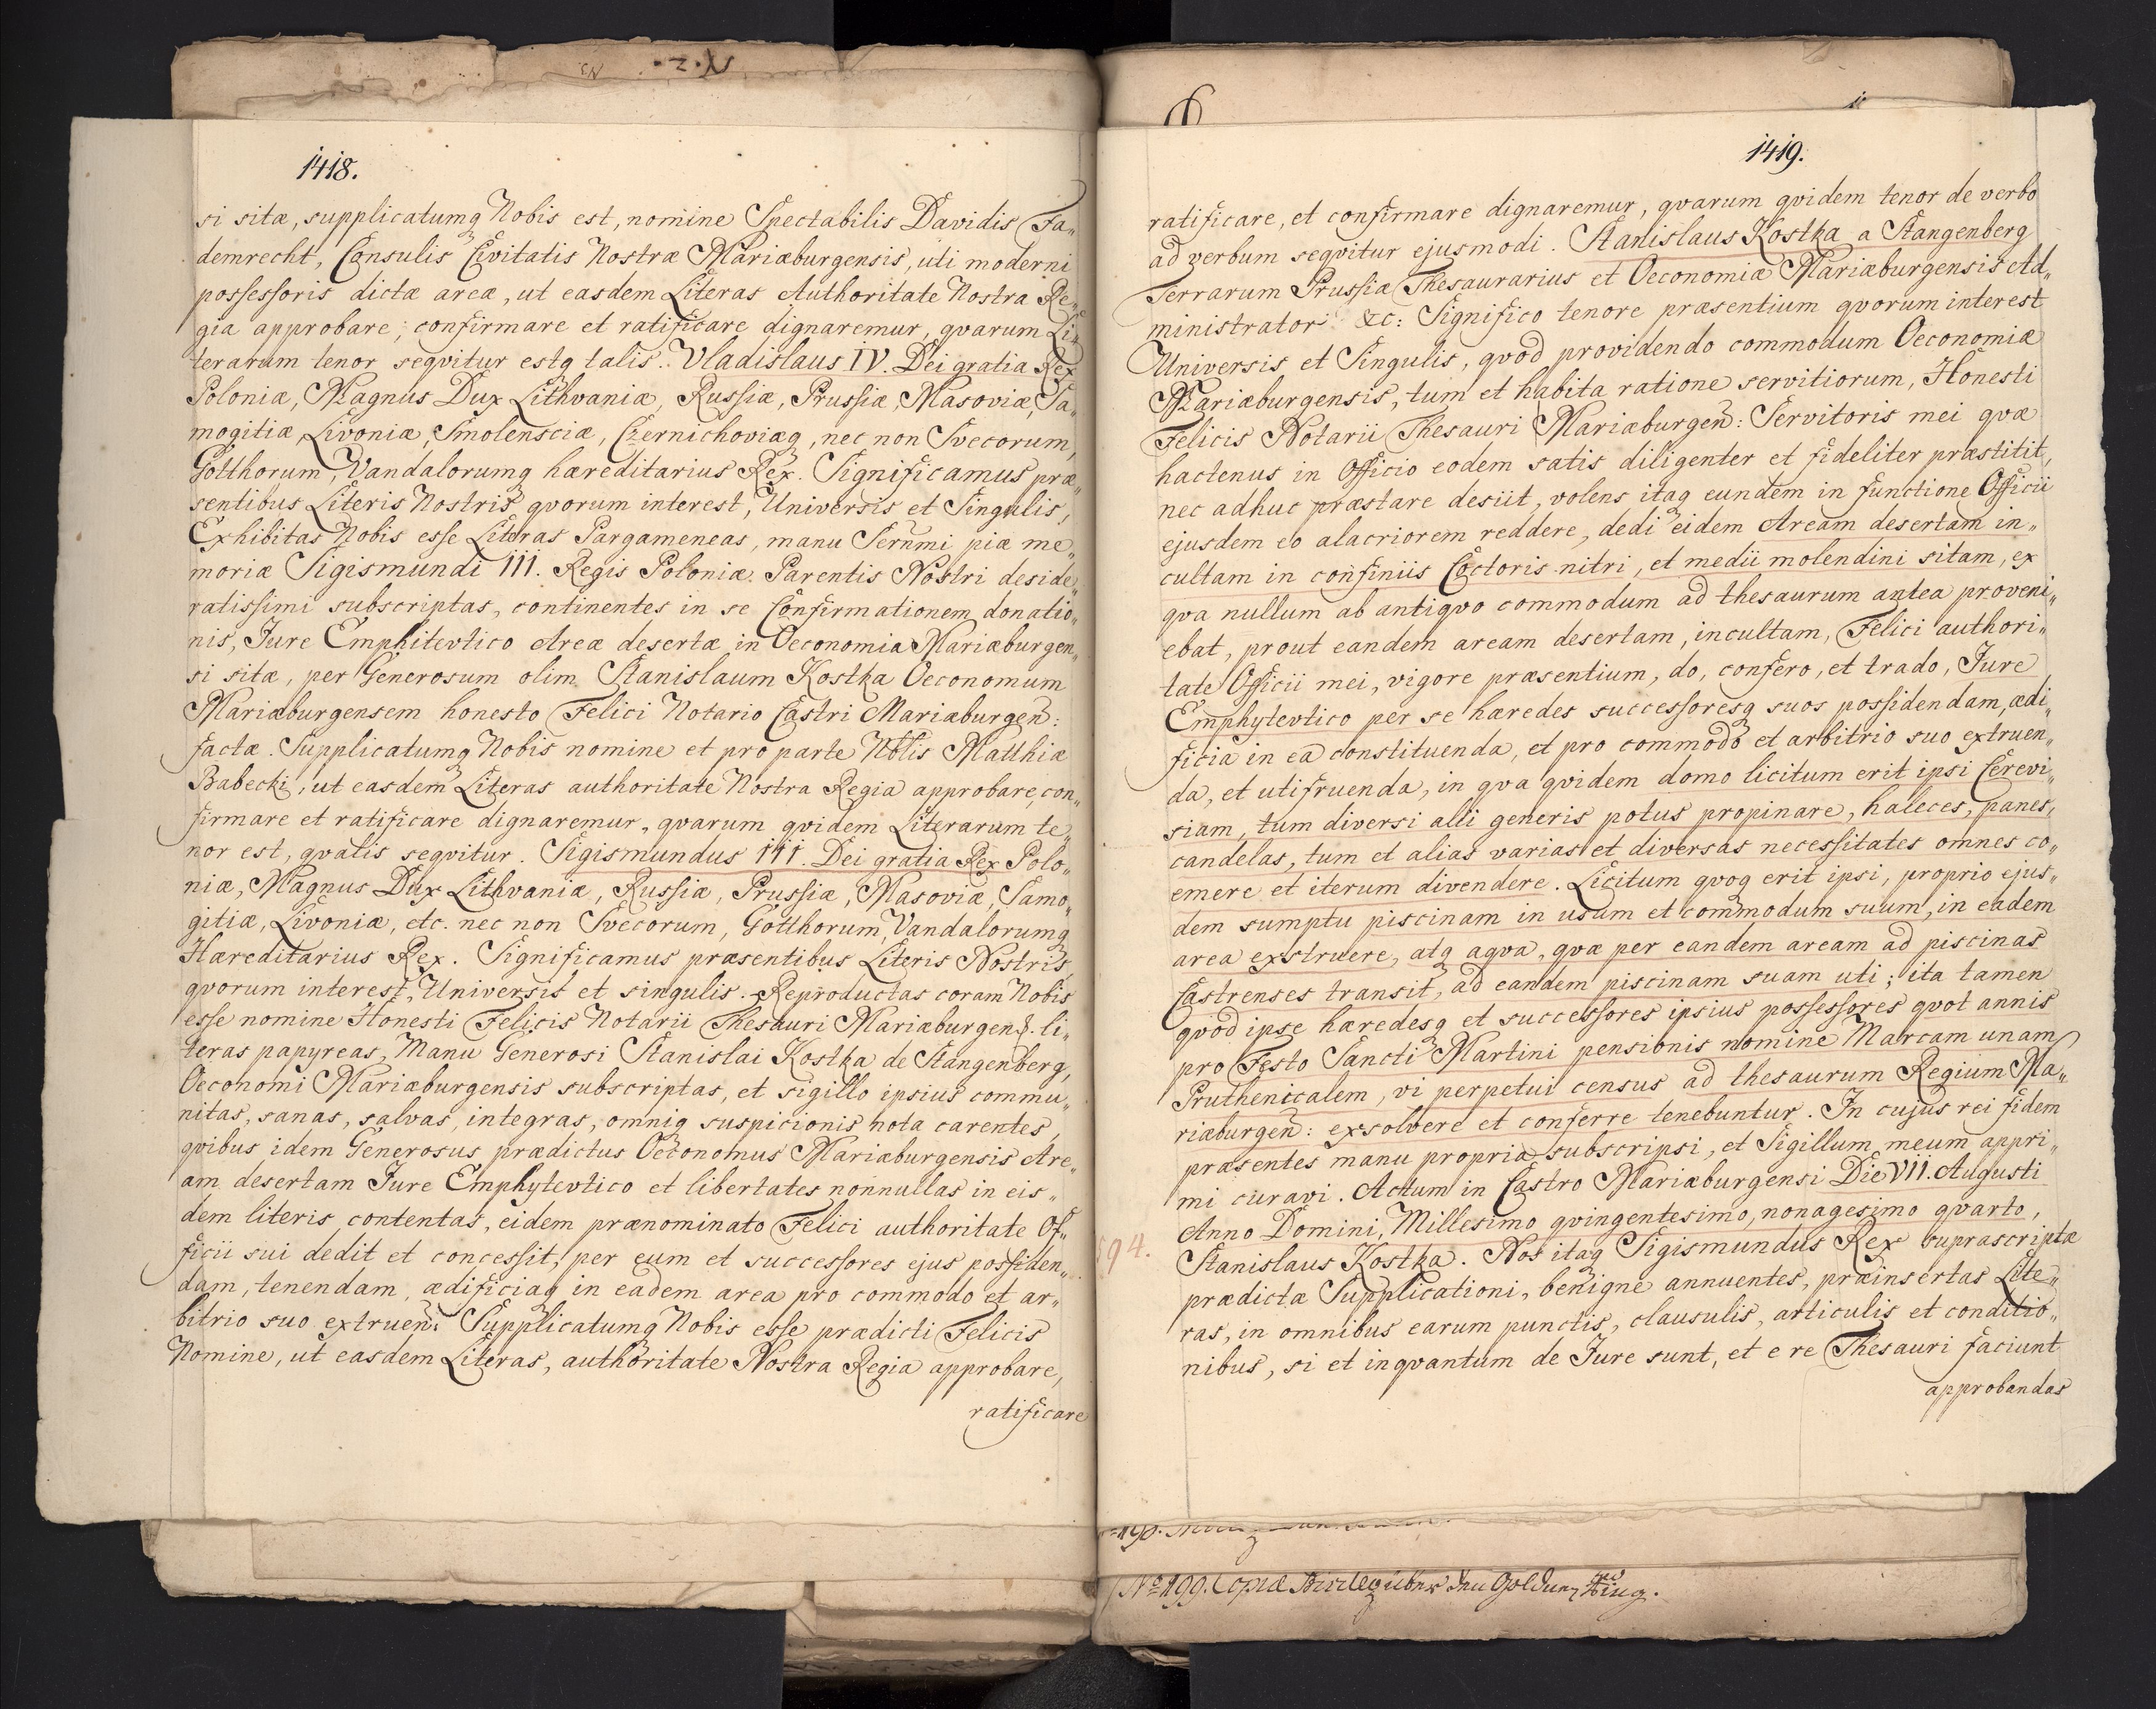 1418.
si sitæ, supplicatumq Nobis est, nomine Spectabilis Davidis Fa„
demrecht, Consulis Civitatis Nostræ Mariæburgensis, uti moderni
possessoris dictæ areæ, ut easdem Literas Authoritate Nostra Re„
gia approbare, confirmare et ratificare dignaremur, qvarum Li„
terarum tenor seqvitur estq talis. Vladislaus IV. Dei gratia Rex
Poloniæ, Magnus Dux Lithvaniæ, Russiæ, Prussiæ, Masoviæ, Sa„
mogitiæ, Livoniæ, Smolensciæ, Czernichoviæq, nec non Svecorum,
Gotthorum, Vandalorumq hæreditarius Rex. Significamus præ„
sentibus Literis Nostris qvorum interest, Universis et Singulis,
Exhibitas Nobis esse Literas Pargameneas, manu Sernmi piæ me„
moriæ Sigismundi III. Regis Poloniæ. Parentis Nostri deside„
ratissimi subscriptas, continentes in se Confirmationem donatio„
nis, Jure Emphitevtico Areæ desertæ in Oeconomia Mariæburgen„
si sitæ, per Generosum olim Stanislaum Kostka Oeconomum
Mariæburgensem honesto Felici Notario Castri Mariæburgen:
factæ. Supplicatumq Nobis nomine et pro parte Nblis Matthiæ
Babecki, ut easdem Literas authoritate Nostra Regia approbare, con„
firmare et ratificare dignaremur, qvarum qvidem Literarum te„
nor est, qvalis seqvitur. Sigismundus III. Dei gratia Rex Polo„
niæ, Magnus Dux Lithvaniæ, Russiæ, Prussiæ, Masoviæ, Samo„
gitiæ, Livoniæ, etc. nec non Svecorum, Gotthorum, Vandalorumq
Hæreditarius Rex. Significamus præsentibus Literis Nostris,
qvorum interest, Universis et singulis. Reproductas coram Nobis
esse nomine Honesti Felicis Notarii Thesauri Mariæburgens. li„
teras papyreas, Manu Generosi Stanislai Kostka de Stangenberg,
Oeconomi Mariæburgensis subscriptas, et sigillo ipsius commu„
nitas, sanas, salvas, integras, omniq suspicionis nota carentes,
qvibus idem Generosus prædictus Oeconomus Mariæburgensis Are„
am desertam Jure Emphytevtico et libertates nonnullas in eis„
dem literis contentas, eidem prænominato Felici authoritate Of„
ficii sui dedit et concessit, per eum et successores ejus possiden„
dam, tenendam, ædificiaq in eadem area pro commodo et ar„
bitrio suo extruen: Supplicatumq Nobis esse prædicti Felicis
Nomine, ut easdem Literas, authoritate Nostra Regia approbare,
ratificare
1419.
ratificare, et confirmare dignaremur, qvarum qvidem tenor de verbo
ad verbum seqvitur ejusmodi. Stanislaus Kostka a Stangenberg
Terrarum Prussiæ Thesaurarius et Oeconomiæ Mariæburgensis Ad„
ministrator &c: Significo tenore præsentium qvorum interest
Universis et Singulis, qvod providendo commodum Oeconomiæ
Mariæburgensis, tum et habita ratione servitiorum, Honesti
Felicis Notarii Thesauri Mariæburgen: Servitoris mei qvæ
hactenus in Officio eodem satis diligenter et fideliter præstitit,
nec adhuc præstare desiit, volens itaq eundem in functione Officii
ejusdem eo alacriorem reddere, dedi eidem Aream desertam in„
cultam in confiniis Coctoris nitri, et medii molendini sitam, ex
qva nullum ab antiqvo commodum ad thesaurum antea proveni„
ebat, prout eandem aream desertam, incultam, Felici authori„
tate Officii mei, vigore præsentium, do, confero, et trado, Jure
Emphytevtico per se hæredes successoresq suos possidendam, ædi„
ficia in ea constituenda, et pro commodo et arbitrio suo extruen„
da, et utifruenda, in qva qvidem domo licitum erit ipsi Cerevi„
siam, tum diversi alli generis potus propinare, haleces, panes,
candelas, tum et alias varias et diversas necessitates omnes co„
emere et iterum divendere. Licitum qvoq erit ipsi, proprio ejus„
dem sumptu piscinam in usum et commodum suum, in eadem
area exstruere, atq aqva, qvæ per eandem aream ad piscinas
Castrenses transit, ad eandem piscinam suam uti; ita tamen
qvod ipse hæredesq et successores ipsius possessores qvot annis
pro Festo Sancti Martini pensionis nomine Marcam unam
Pruthenicalem, vi perpetui census ad thesaurum Regium Ma„
riæburgen: exsolvere et conferre tenebuntur. In cujus rei fidem
præsentes manu propria subscripsi, et Sigillum meum appri„
mi curavi. Actum in Castro Mariæburgensi Die VII. Augusti
Anno Domini, Millesimo qvingentesimo, nonagesimo qvarto,
594.
Stanislaus Kostka. Nos itaq Sigismundus Rex suprascriptæ
prædictæ Supplicationi, benigne annuentes, præinsertas Lite„
ras, in omnibus earum punctis, clausulis, articulis et conditio„
nibus, si et inqvantum de Jure sunt, et e re Thesauri faciunt
approbandas